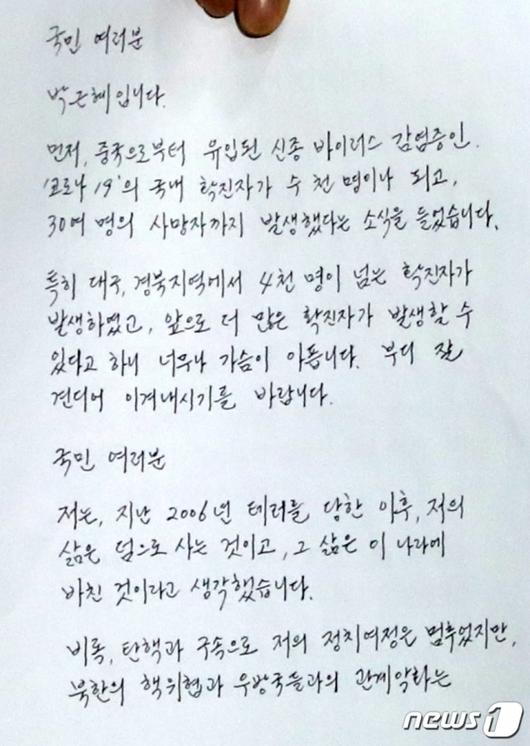 국민 여러분
박근혜입니다.
먼저, 중국으로부터 유입된 신종 바이러스 감염증인.
'코로나 19'의 국내 확진자가 수 천 명이나 되고,
30여 명의 사망자까지 발생했다는 소식을 들었습니다.
특히 대구, 경북지역에서 4천 명이 넘는 확진자가
발생하였고, 앞으로 더 많은 확진자가 발생할 수
있다고 하니 너무나 가슴이 아픕니다. 부디 잘
견디어 이겨내시기를 바랍니다.
국민 여러분
저는, 지난 2006년 테러를 당한 이후, 저의
삶은 덤으로 사는 것이고, 그 삶은 이 나라에
바친 것이라고 생각했습니다.
비록, 탄핵과 구속으로 저의 정치여정은 멈추었지만,
북한의 핵위협과 우방국들과의 관계악화는
news1